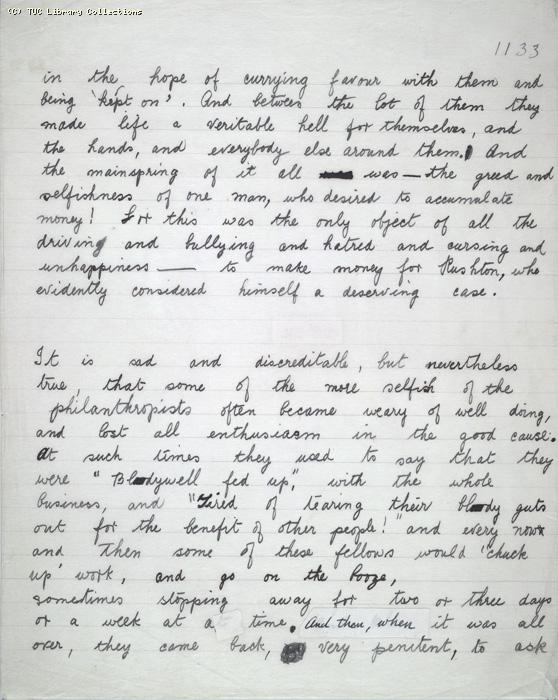 (C) TUC Library Collections
1133
in the hope of currying favour with them and
being 'kept on'. And between the lot of them they
made life a veritable hell for themselves, and
the hands, and everybody else around them. And
the mainspring of it all was — the greed and
selfishness of one man, who desired to accumulate
money! For this was the only object of all the
driving and bullying and hatred and cursing and
unhappiness — to make money for Rushton, who
evidently considered himself a deserving case.
It is sad and discreditable, but nevertheless
true, that some of the more selfish of the
philanthropists often became weary of well doing,
and lost all enthusiasm in the good cause.
At such times they used to say that they
were "Bloodywell fed up," with the whole
business, and "Tired of tearing their bloody guts
out for the benefit of other people!" and every now
and then some of these fellows would 'chuck
up' work, and go on the booze,
sometimes stopping away for two or three days
or a week at a time. And then, when it was all
over, they came back, very penitent, to ask